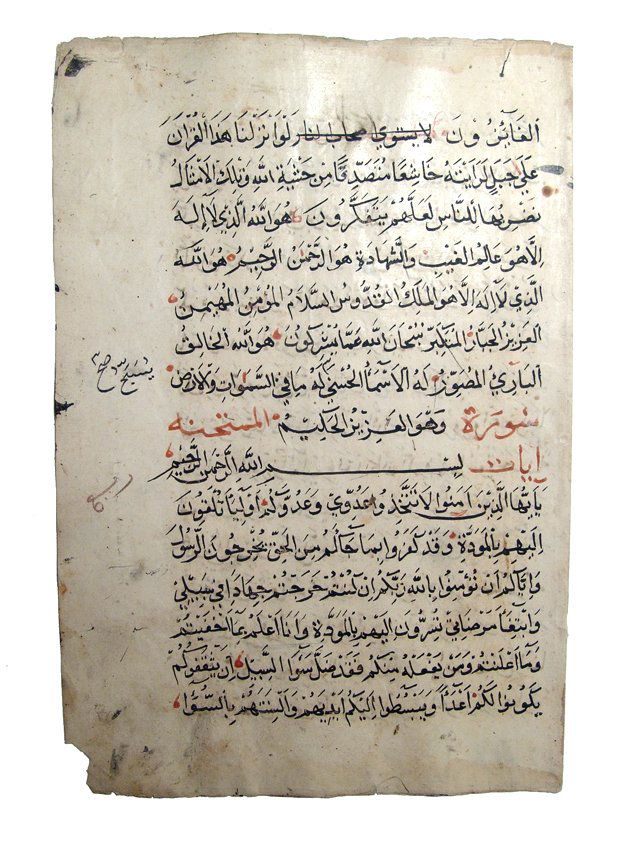 الفَآئِزُونَ لا يستوي صحاب النار لَوْ اَنْزَلْنَا هَذَا الْقُرْآنَ
عَلَى جَبَلٍ لَرَاَيْتَهُ خَاشِعًا مُتَصَدِّعًا مِنْ خَشْيَةِ اللّٰهِ وَتِلْكَ الْاَمْثَالُ
نَضْرِبُهَا لِلنَّاسِ لَعَلَّهُمْ يَتَفَكَّرُونَ هُوَ اللّٰهُ الَّذِي لَا اِلٰهَ
اِلَّا هُوَ عَالِمُ الْغَيْبِ وَالشَّهَادَةِ هُوَ الرَّحْمٰنُ الرَّحِيمُ هُوَ اللّٰهُ
الَّذِي لَآ اِلٰهَ اِلَّا هُوَ الْمَلِكُ الْقُدُّوسُ السَّلَامُ الْمُؤْمِنُ الْمُهَيْمِنُ
الْعَزِيزُ الْجَبَّارُ الْمُتَكَبِّرُ سُبْحَانَ اللّٰهِ عَمَّا يُشْرِكُونَ هُوَ اللّٰهُ الْخَالِقُ
الْبَارِئُ الْمُصَوِّرُ لَهُ الْاَسْمَآءُ الْحُسْنَى لَهُ مَا فِي السَّمٰوَاتِ وَالْاَرْضِ
سُورَة وَهُوَ الْعَزِيزُ الْحَكِيمُ الممتحنه
ايات بِسْمِ اللّٰهِ الرَّحْمٰنِ الرَّحِيمِ
يَآ اَيُّهَا الَّذِينَ اٰمَنُوا لَا تَتَّخِذُوا عَدُوِّي وَعَدُوَّكُمْ اَوْلِيَآءَ تُلْقُونَ
اِلَيْهِمْ بِالْمَوَدَّةِ وَقَدْ كَفَرُوا بِمَا جَآءَكُمْ مِنَ الْحَقِّ يُخْرِجُونَ الرَّسُولَ
وَاِيَّاكُمْ اَنْ تُؤْمِنُوا بِاللّٰهِ رَبِّكُمْ اِنْ كُنْتُمْ خَرَجْتُمْ جِهَادًا فِي سَبِيلِي
وَابْتِغَآءَ مَرْضَاتِي تُسِرُّونَ اِلَيْهِمْ بِالْمَوَدَّةِ وَاَنَا اَعْلَمُ بِمَآ اَخْفَيْتُمْ
وَمَآ اَعْلَنْتُمْ وَمَنْ يَفْعَلْهُ مِنْكُمْ فَقَدْ ضَلَّ سَوَآءَ السَّبِيلِ اِنْ يَثْقَفُوكُمْ
يَكُونُوا لَكُمْ اَعْدَآءً وَيَبْسُطُوا اِلَيْكُمْ اَيْدِيَهُمْ وَاَلْسِنَتَهُمْ بِالسُّوٓءِ